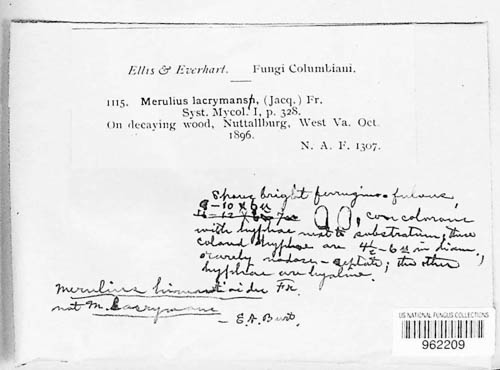 Ellis & Everhart. Fungi Columbiani.
1115. Merulius lacrymans, (Jacq.) Fr.
Syst. Mycol. I, p. 328.
On decaying wood, Nuttallburg, West Va. Oct.
1896.
N. A. F. 1307.
Spores bright ferrugino-fulvous,
8–10 x 6 u
with hyphae next to substratum; these
colored hyphae are 4½–6 u in diam.,
rarely nodose-septate; the other
hyphae are hyaline.
Merulius himantioides Fr.
not M. lacrymans
– E. A. Burt.
US NATIONAL FUNGUS COLLECTIONS
962209